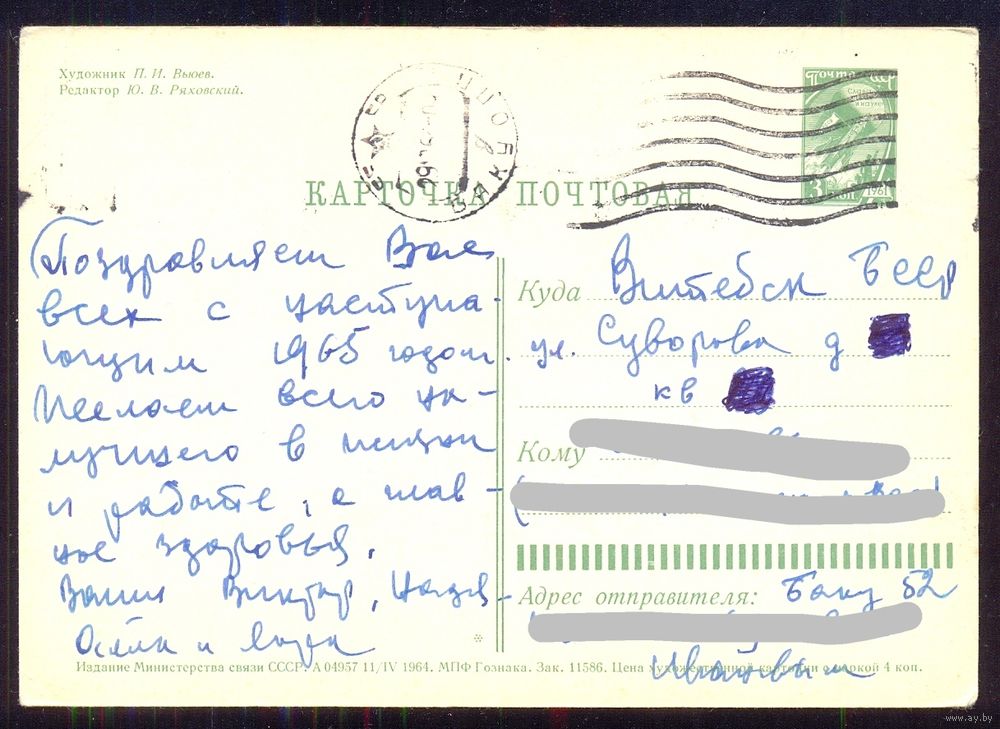 Художник П. И. Вьюев.
Редактор Ю. В. Ряховский.
Почта СССР
Слава
науке
3 коп
1961
КАРТОЧКА ПОЧТОВАЯ
Поздравляем Вас
всех с наступа-
ющим 1965 годом.
Желаем всего на-
илучшего в жизни
и работе, а глав-
ное здоровья.
Ваши Виктор, Надя
и Лора
Куда Витебск БССР
ул. Суворова д
кв
Кому
Адрес отправителя: Баку 52
Издание Министерства связи СССР. А 04957 11/IV 1964. МПФ Гознака. Зак. 11586. Цена художественной карточки с маркой 4 коп.
www.ay.by